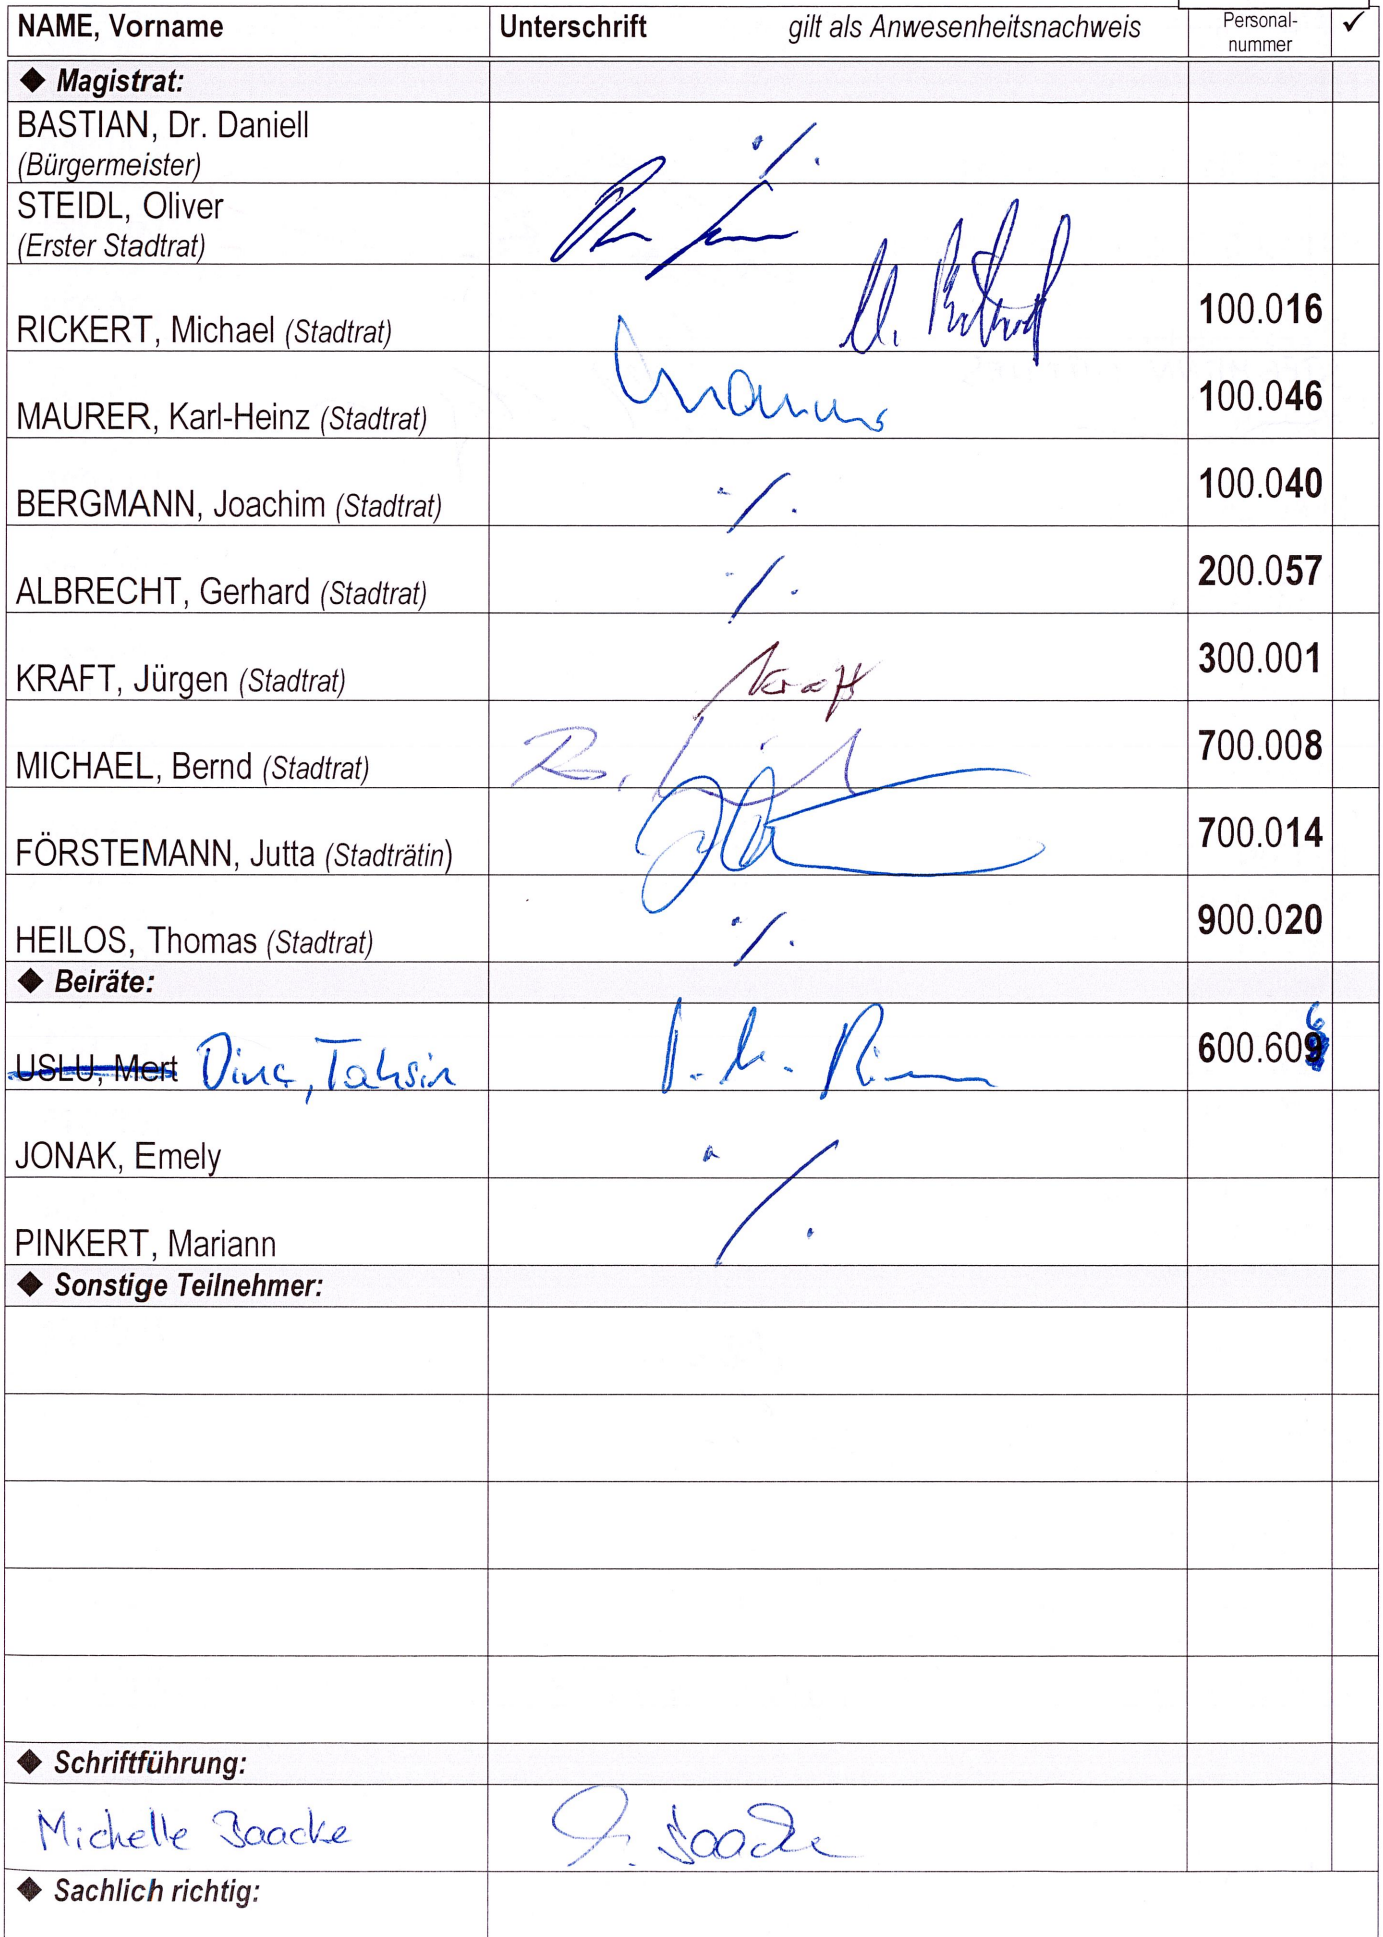 NAME, Vorname Unterschrift gilt als Anwesenheitsnachweis Personal-
nummer ✓
◆ Magistrat:
BASTIAN, Dr. Daniell
(Bürgermeister) ·/.
STEIDL, Oliver
(Erster Stadtrat)
RICKERT, Michael (Stadtrat) 100.016
MAURER, Karl-Heinz (Stadtrat) 100.046
BERGMANN, Joachim (Stadtrat) ·/. 100.040
ALBRECHT, Gerhard (Stadtrat) ·/. 200.057
KRAFT, Jürgen (Stadtrat) Kraft 300.001
MICHAEL, Bernd (Stadtrat) 700.008
FÖRSTEMANN, Jutta (Stadträtin) 700.014
HEILOS, Thomas (Stadtrat) ·/. 900.020
◆ Beiräte:
USLU, Mert Dinc, Tahsin 600.606
JONAK, Emely ·/.
PINKERT, Mariann
◆ Sonstige Teilnehmer:
◆ Schriftführung:
Michelle Baacke Baacke
◆ Sachlich richtig: